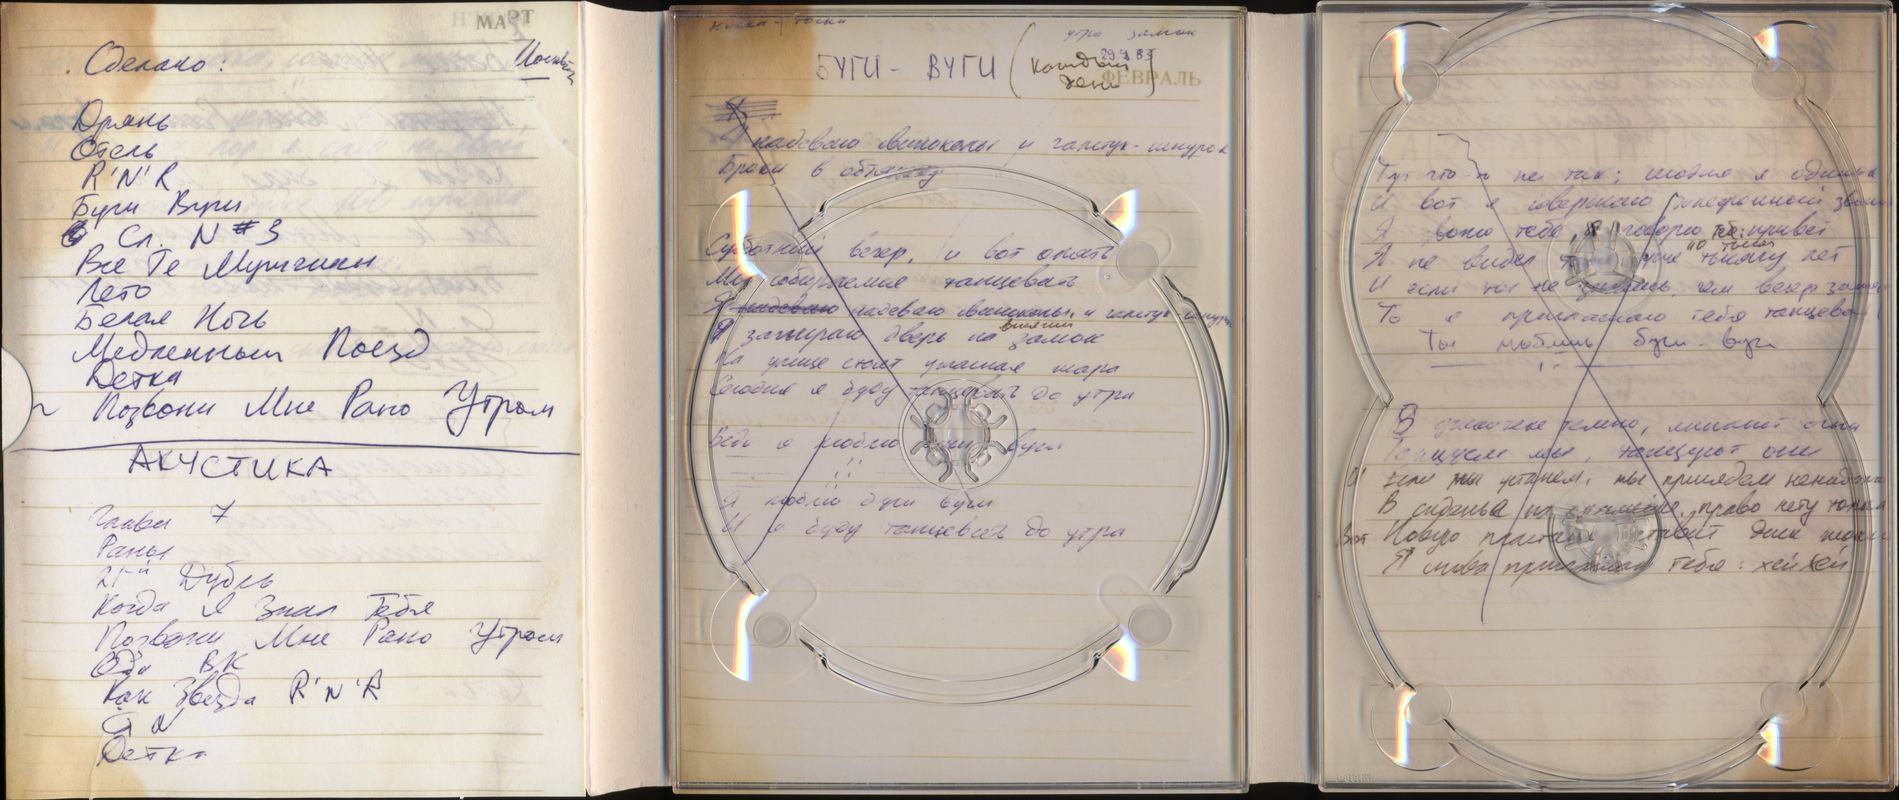 МАРТ
Сделано:
Дрянь
Отель
R'N'R
Буги Вуги
Сл. N #3
Все Те Мужчины
Лето
Белая Ночь
Медленный Поезд
Детка
Позвони Мне Рано Утром
АКУСТИКА
Глава 7
Раны
21-й Дубль
Когда Я Знал Тебя
Позвони Мне Рано Утром
Ода ВК
Как Звезда R'N'R
Сл N
Детка
утро замок
БУГИ - ВУГИ (Каждый день)
ФЕВРАЛЬ
Я надеваю и галстук-шнурок
Брюки в обтяжку
Субботний вечер, и вот опять
Мы собираемся танцевать
Я надеваю надеваю и галстук шнурок
Я запираю дверь на висячий замок
На улице стоит ужасная жара
Сегодня я буду танцевать до утра
Ведь я люблю буги вуги
Я люблю буги вуги
И я буду танцевать до утра
Тут что-то не так; сегодня я один
И вот я совершаю телефонный звонок
Я звоню тебе, я говорю тебе: привет
Я не видел тысячу лет
И если ты не знаешь, чем вечер занять
То я приглашаю тебя танцевать
Ты любишь буги-вуги
В темно, мигают огни
Танцуем мы, танцуют они
И если мы устанем, мы присядем ненадолго
В сиденьи на, право нету толка
Вот Новую ставит диск-жокей
Я снова приглашаю тебя: хей хей